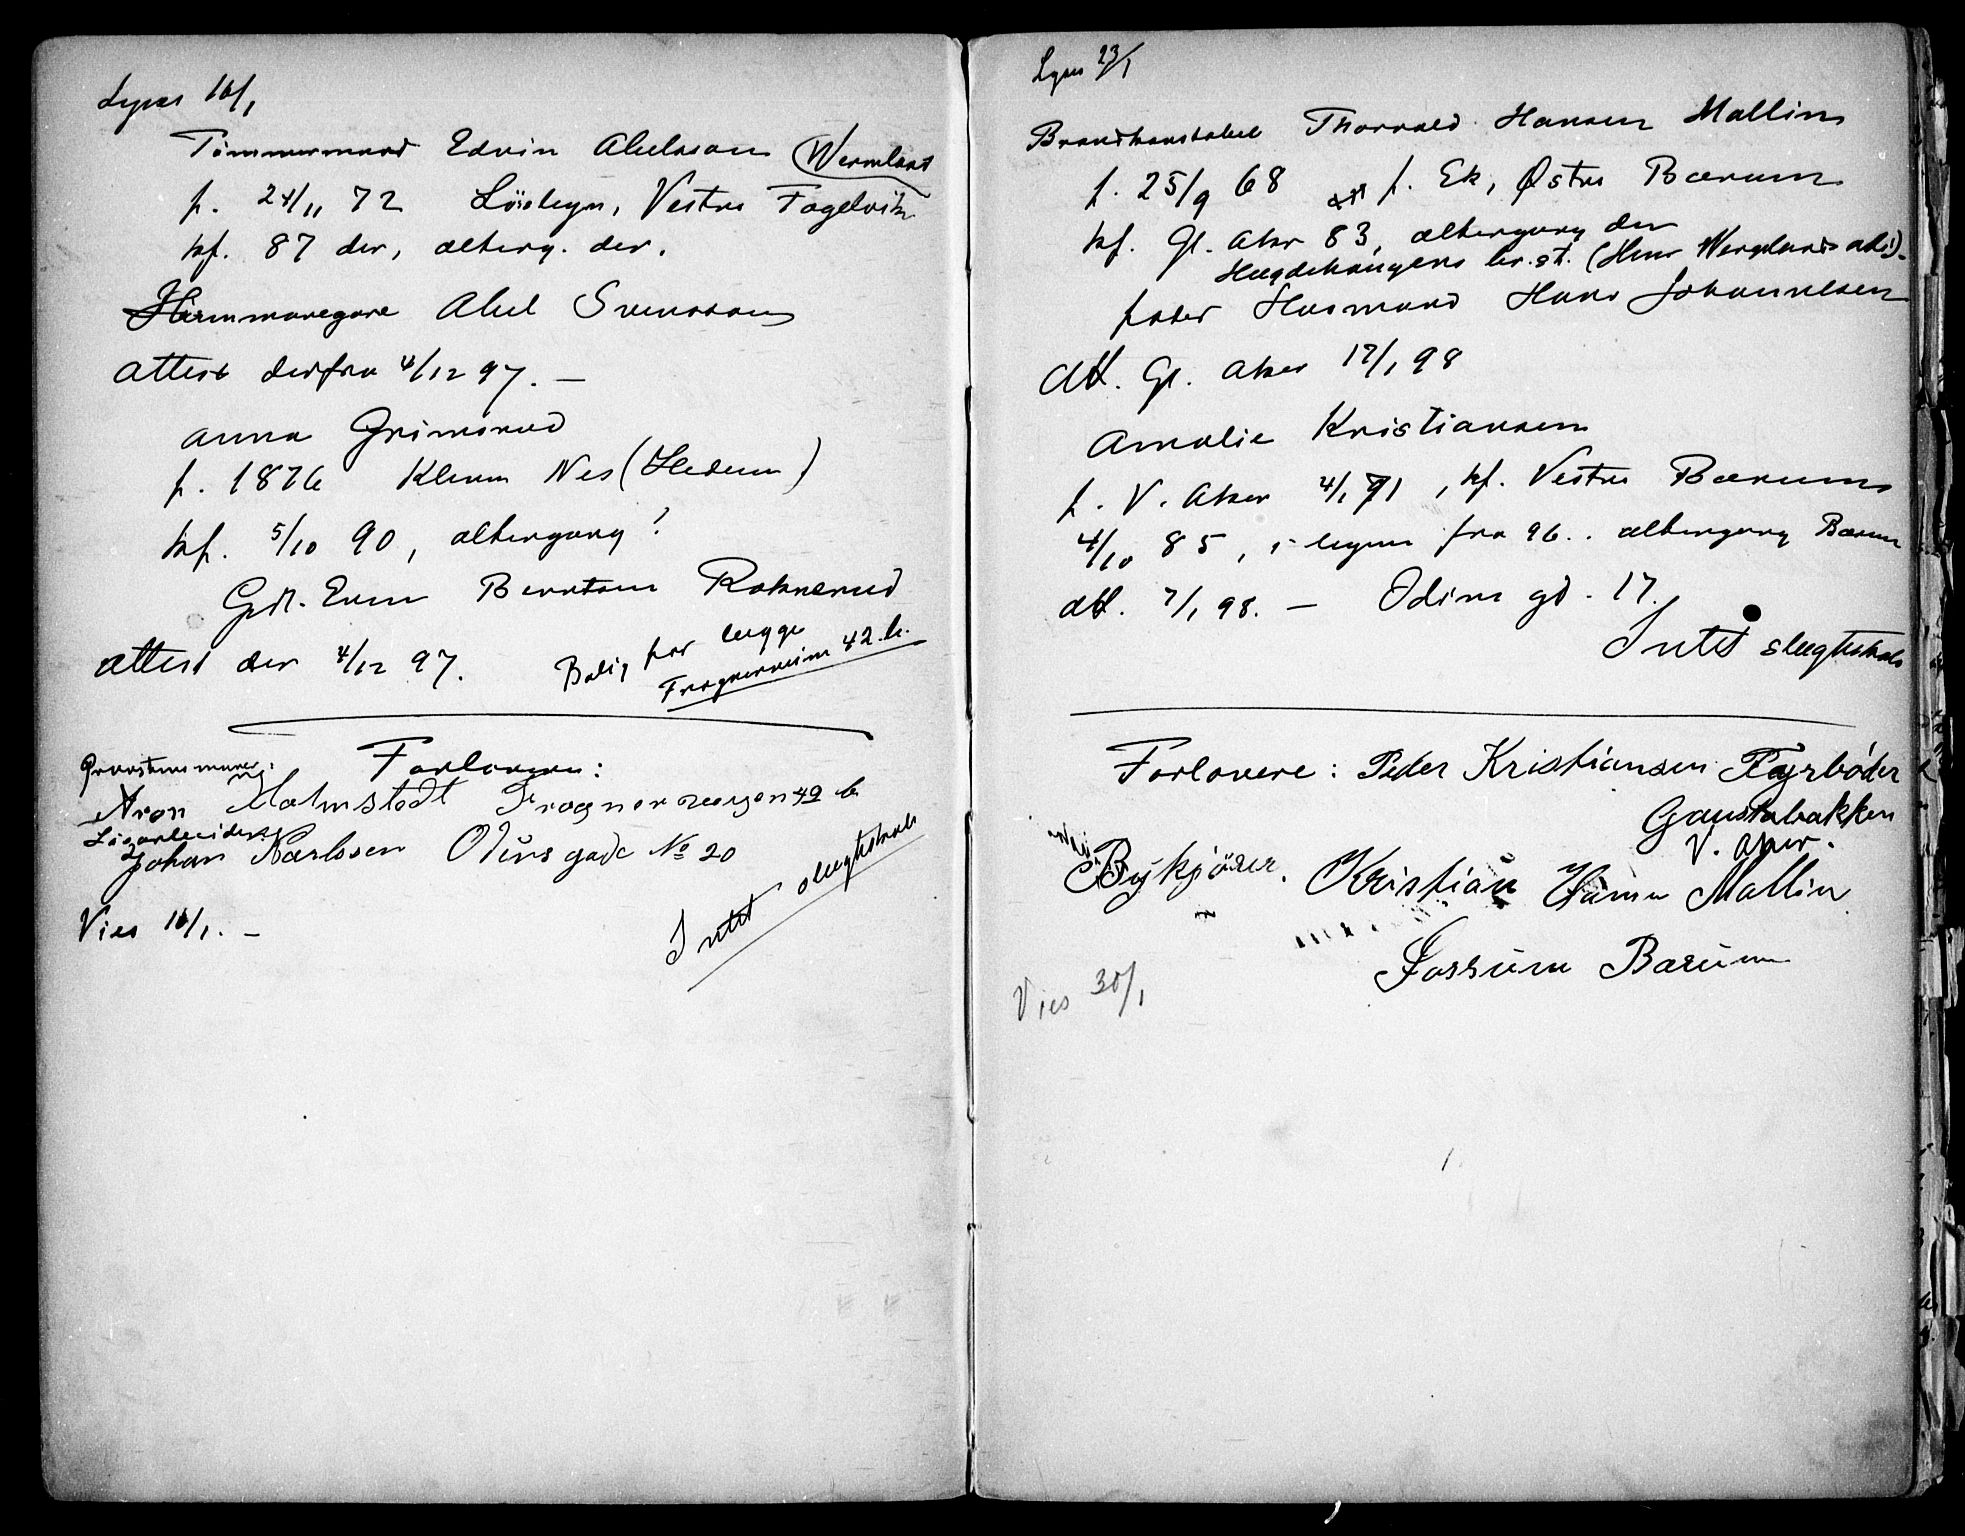 Lyses 16/1
Tömmermand Edvin Axelsson (Wermland
f. 24/11 72 Vestra Fogelvik
kf. 87 der, alterg. der.
Hemmanegare Axel Svensson
Attest derfra 4/12 97. —
Anna Grimsrud
f. 1876 Nes (Hedem)
kf. 5/10 90, altergang?
Gdr. Even Berntsen
Attest der 4/12 97.
Bolig for begge
Frognerveien 42 b.
Forlovere:
Aron Malmstedt Frognerveyen 42 b
Johan Karlsson Odins gade No 20
Intet slegtskab
Vies 16/1. —
Lyses 23/1
Brandkonstabel Thorvald Hansen Mallin
f. 25/9 68 f. Ek, Østre Bærum
kf. Gl. Aker 83, altergang den
Hægdehaugens br.st. (Henr Wergelands
fader Husmand Hans Johannesen
Att. Gl. Aker 17/1 98
Amalie Kristiansen
f. V. Aker 4/1 71, kf. Vestre Bærum
4/10 85, i byen fra 96. altergang Bærum
att. 7/1 98. — Odins gd. 17.
Intet slegtskab
Forlovere: Peder Kristiansen Fyrbøder
Gaustabakken
V. Aker.
Bykjörer. Kristian Hansen Mallin
Fossum Bærum
Vies 30/1